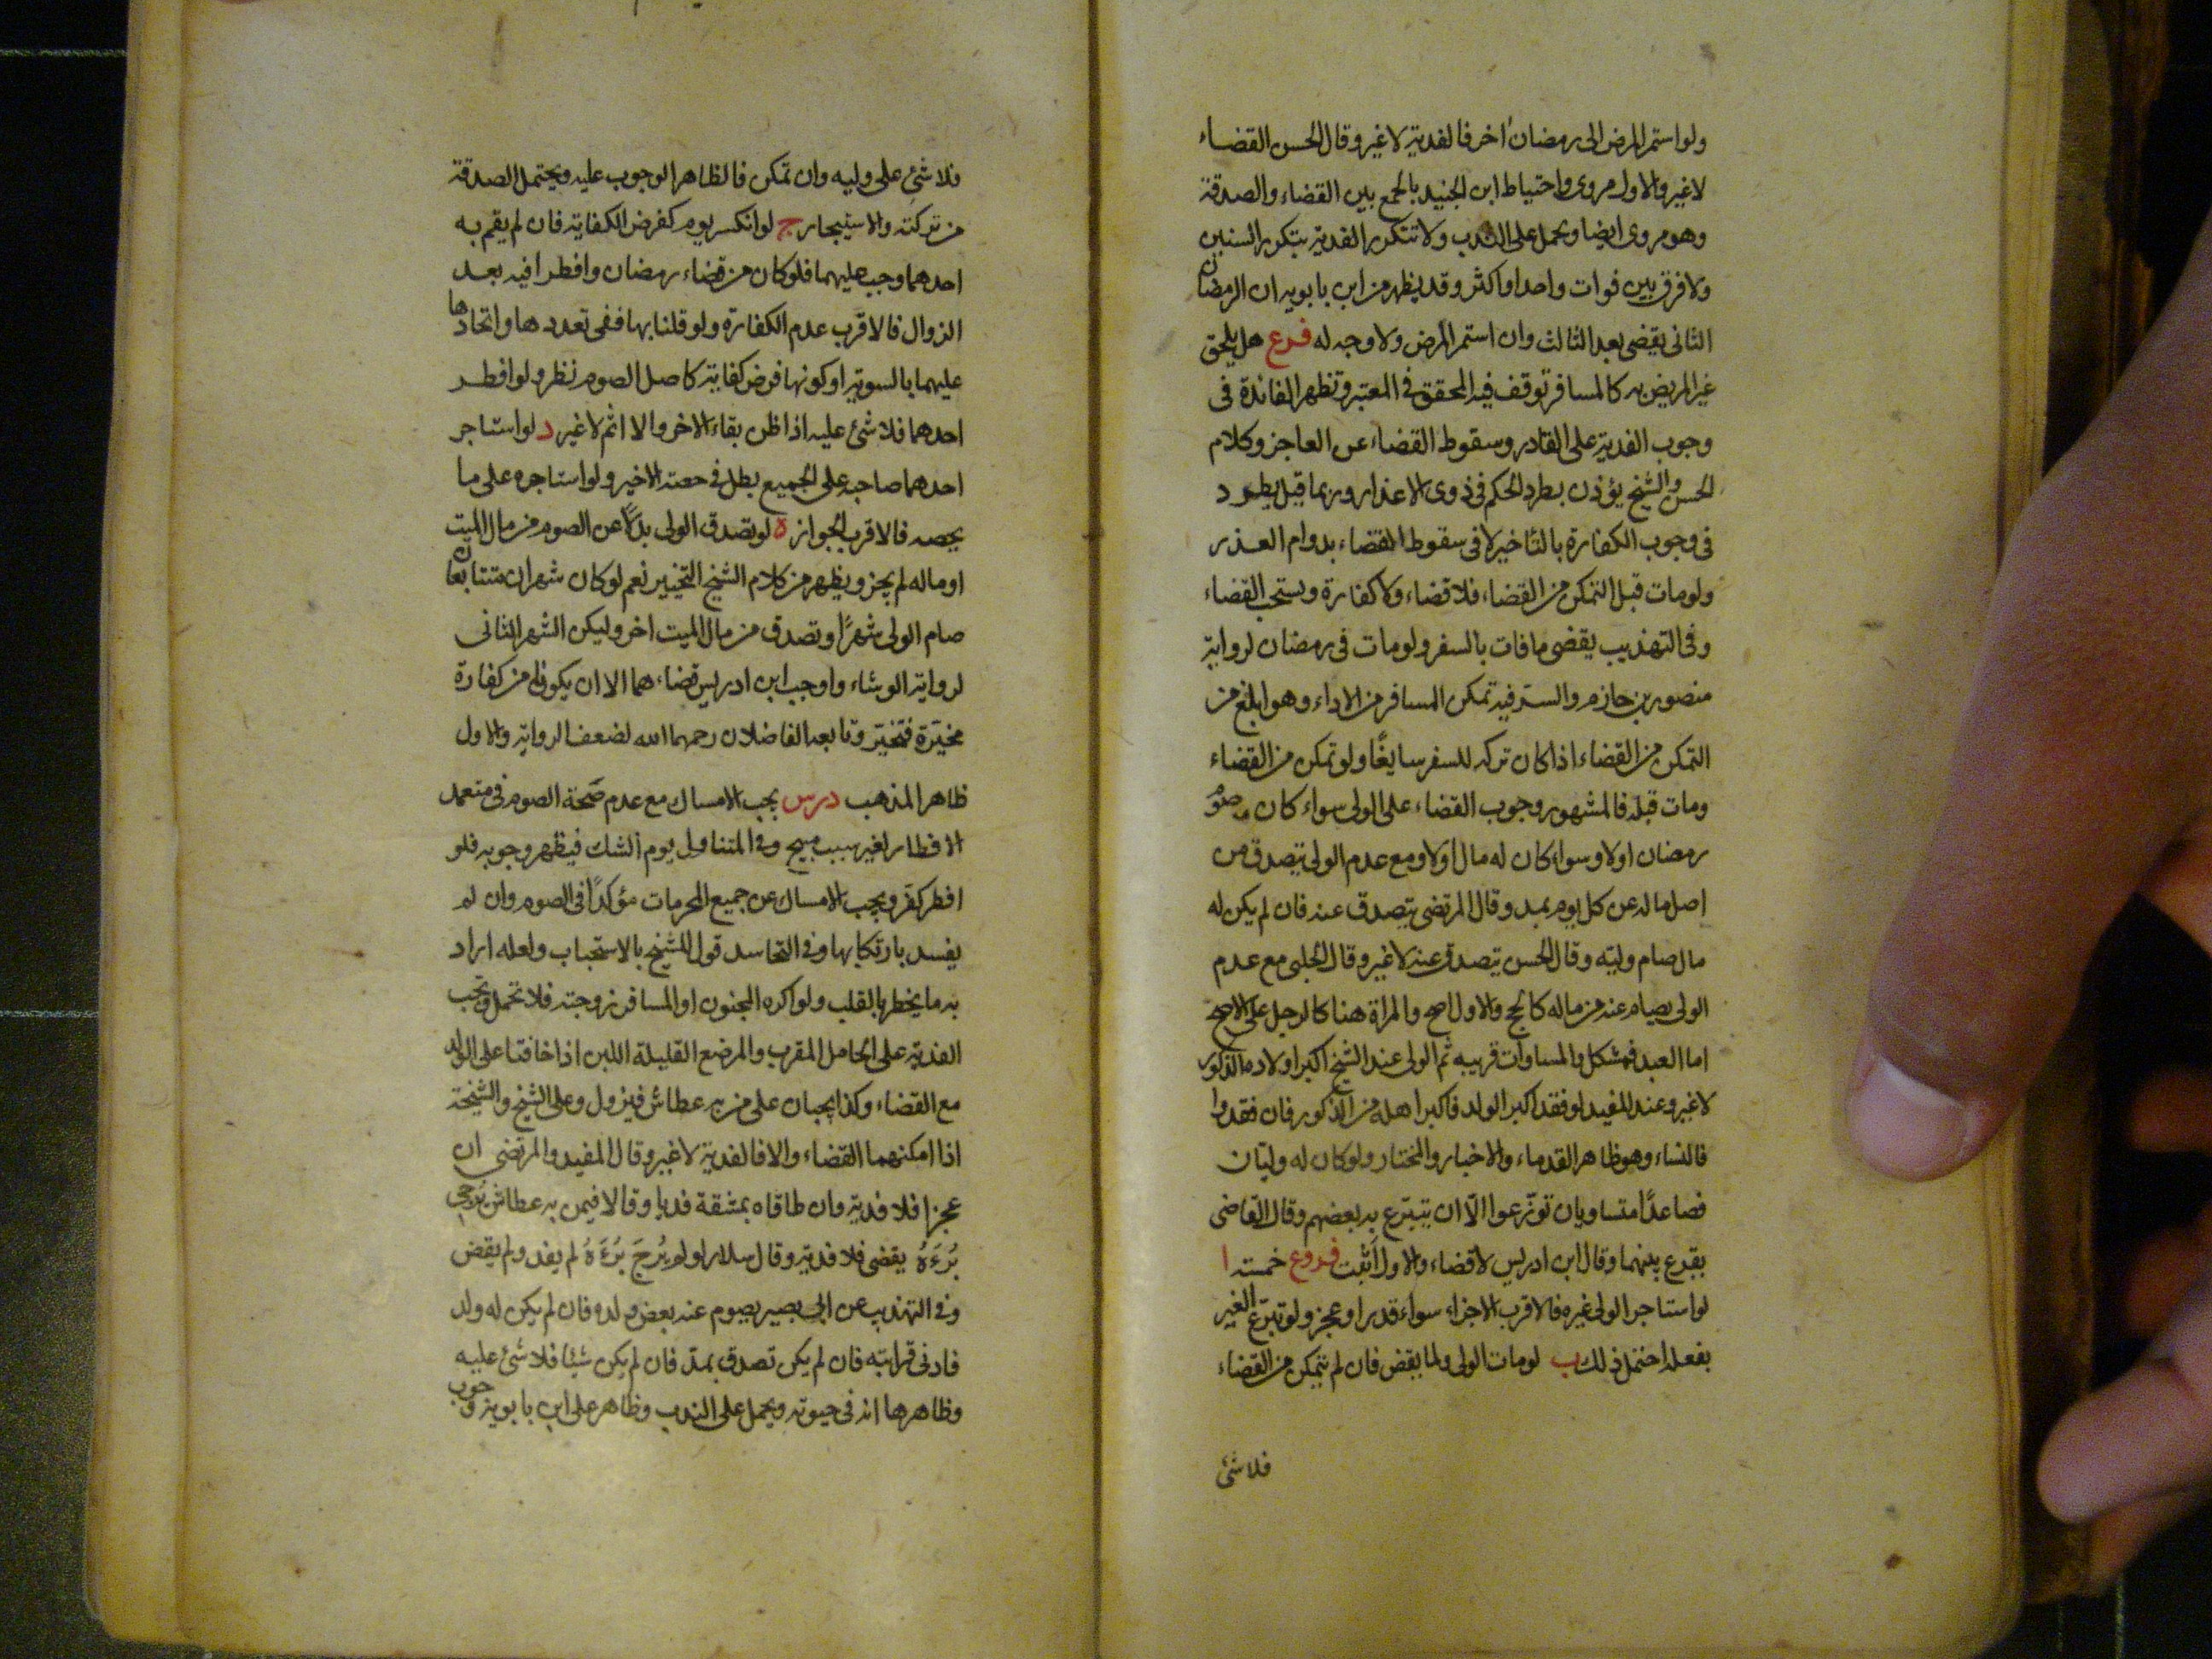 ولو استمر المرض الى رمضان اخر فالفدية لا غير وقال الحسن القضاء
لا غير والاول مروى واحتياط ابن الجنيد بالجمع بين القضاء والصدقة
وهو مروى ايضا ويحمل على الندب ولا تتكرر الفدية بتكرر السنين
ولا فرق بين فوات واحد او اكثر وقد يظهر من ابن بابويه ان الرمضان
الثانى يقضى بعد الثالث وان استمر المرض ولا وجه له فرع هل يلحق
غير المريض به كالمسافر توقف فيه المحقق فى المعتبر وتظهر الفائدة فى
وجوب الفدية على القادر وسقوط القضاء عن العاجز وكلام
الحسن والشيخ يؤذن بطرد الحكم فى ذوى الاعذار وربما قيل يطرد
فى وجوب الكفارة بالتاخير لا فى سقوط القضاء بدوام العذر
ولو مات قبل التمكن من القضاء فلا قضاء ولا كفارة ويستحب القضاء
وفى التهذيب يقضى ما فات بالسفر ولو مات فى رمضان لرواية
منصور بن حازم والسر فيه تمكن المسافر من الاداء وهو ابلغ من
التمكن من القضاء اذا كان تركه للسفر سايغًا ولو تمكن من القضاء
ومات قبله فالمشهور وجوب القضاء على الولى سواء كان صوم
رمضان اولا وسواء كان له مال اولا ومع عدم الولى يتصدق من
اصل ماله عن كل يوم بمد وقال المرتضى يتصدق عنه فان لم يكن له
مال صام وليه وقال الحسن يتصدق عنه لا غير وقال الحلبى مع عدم
الولى يصام عنه من ماله كالحج والاول اصح والمراة هنا كالرجل على الاصح
اما العبد فمشكل والمساوات قريبه ثم الولى عند الشيخ اكبر اولاده الذكور
لا غير وعند المفيد لو فقد اكبر الولد فاكبر اهله من الذكور فان فقدوا
فالنساء وهو ظاهر القدماء والاخبار والمختار ولو كان له وليان
فصاعدًا متساويان توزعوا الّا ان يتبرع به بعضهم وقال القاضى
يقرع بينهما وقال ابن ادريس لا قضاء والاول اثبت فروع خمسة ا
لو استاجر الولى غيره فالاقرب الاجزاء سواء قدر او عجز ولو تبرع الغير
بفعله احتمل ذلك ب لو مات الولى ولما يقض فان لم يتمكن من القضاء
فلا شئ
فلا شئ على وليه وان تمكن فالظاهر الوجوب عليه ويحتمل الصدقة
من تركته والاستيجار ج لو انكسر يوم كفرض الكفاية فان لم يقم به
احدهما وجب عليهما فلو كان من قضاء رمضان وافطرا فيه بعد
الزوال فالاقرب عدم الكفارة ولو قلنا بها ففى تعددها واتحادها
عليهما بالسوية او كونها فرض كفاية كاصل الصوم نظر ولو افطر
احدهما فلا شئ عليه اذا ظن بقاء الاخر والا اثم لا غير د لو استاجر
احدهما صاحبه على الجميع بطل فى حصته الاخير ولو استاجره على ما
يخصه فالاقرب الجواز ه لو تصدق الولى بدلًا عن الصوم من مال الميت
او ماله لم يجز ويظهر من كلام الشيخ التخيير نعم لو كان شهران متتابعان
صام الولى شهرًا وتصدق من مال الميت اخر وليكن الشهر الثانى
لرواية الوشاء واوجب ابن ادريس قضاءهما الا ان يكونا من كفارة
مخيّرة فتخيّر وتابعه الفاضلان رحمهما الله لضعف الرواية والاول
ظاهر المذهب درس يجب الامساك مع عدم صحة الصوم فى متعمد
الافطار لغير سبب مبيح وفى المتناول يوم الشك فيظهر وجوبه فلو
افطر كفر ويجب الامساك عن جميع المحرمات مؤكدًا فى الصوم وان لم
يفسد بارتكابها وفى التحاسد قول للشيخ بالاستحباب ولعله اراد
به ما يخطر بالقلب ولو اكره المجنون او المسافر زوجته فلا تحمل وتجب
الفدية على الحامل المقرب والمرضع القليلة اللبن اذا خافتا على الولد
مع القضاء وكذا يجبان على من به عطاش فيزول وعلى الشيخ والشيخة
اذا امكنهما القضاء والا فالفدية لا غير وقال المفيد والمرتضى ان
عجزا فلا فدية وان طاقاه بمشقة فديا وقالا فيمن به عطاش يُرجى
بُرءَهُ يقضى فلا فدية وقال سلار لو لم يُرجَ بُرءَهُ لم يفد ولم يقض
وفى التهذيب عن ابى بصير يصوم عنه بعض ولده فان لم يكن له ولد
فادنى قرابته فان لم يكن تصدق بمد فان لم يكن شيئا فلا شئ عليه
وظاهرها انه فى حيوته ويحمل على الندب وظاهر على ابن بابويه وجوب